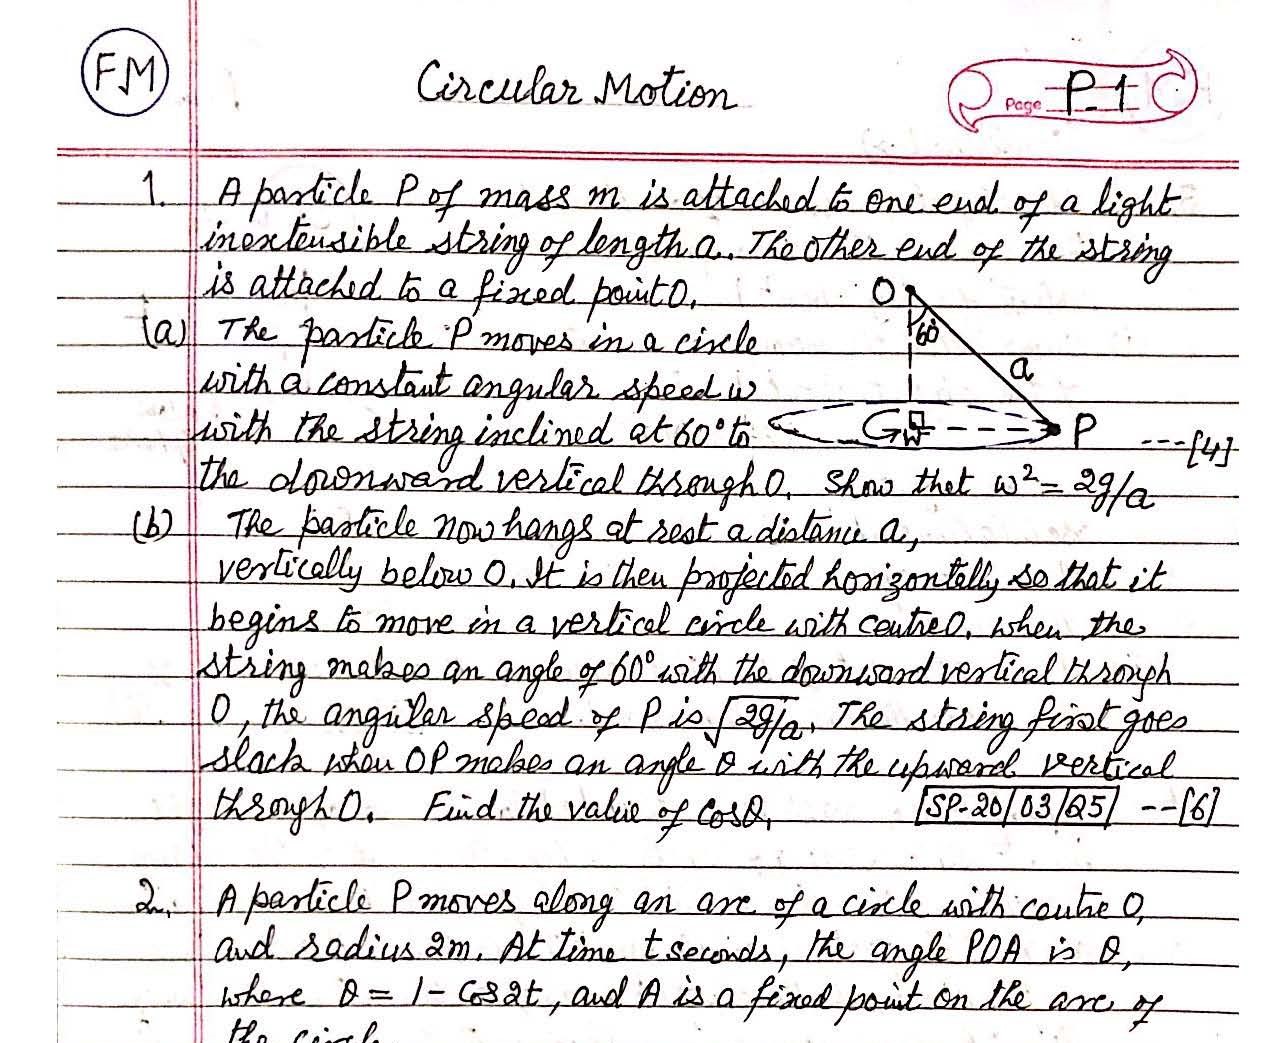 FM
Circular Motion
Page P-1
1. A particle P of mass m is attached to one end of a light
inextensible string of length a. The other end of the string
is attached to a fixed point O.
O
60°
a
P
w
(a) The particle P moves in a circle
with a constant angular speed w
with the string inclined at 60° to ---[4]
the downward vertical through O. Show that w² = 2g/a
(b) The particle now hangs at rest a distance a,
vertically below O. It is then projected horizontally so that it
begins to move in a vertical circle with centre O. when the
string makes an angle of 60° with the downward vertical through
O, the angular speed of P is √2g/a. The string first goes
slack when OP makes an angle θ with the upward vertical
through O. Find the value of Cosθ. [SP-20/03/Q5] --[6]
2. A particle P moves along an arc of a circle with centre O,
and radius 2m. At time t seconds, the angle POA is θ,
where θ = 1 - Cos2t, and A is a fixed point on the arc of
the circle